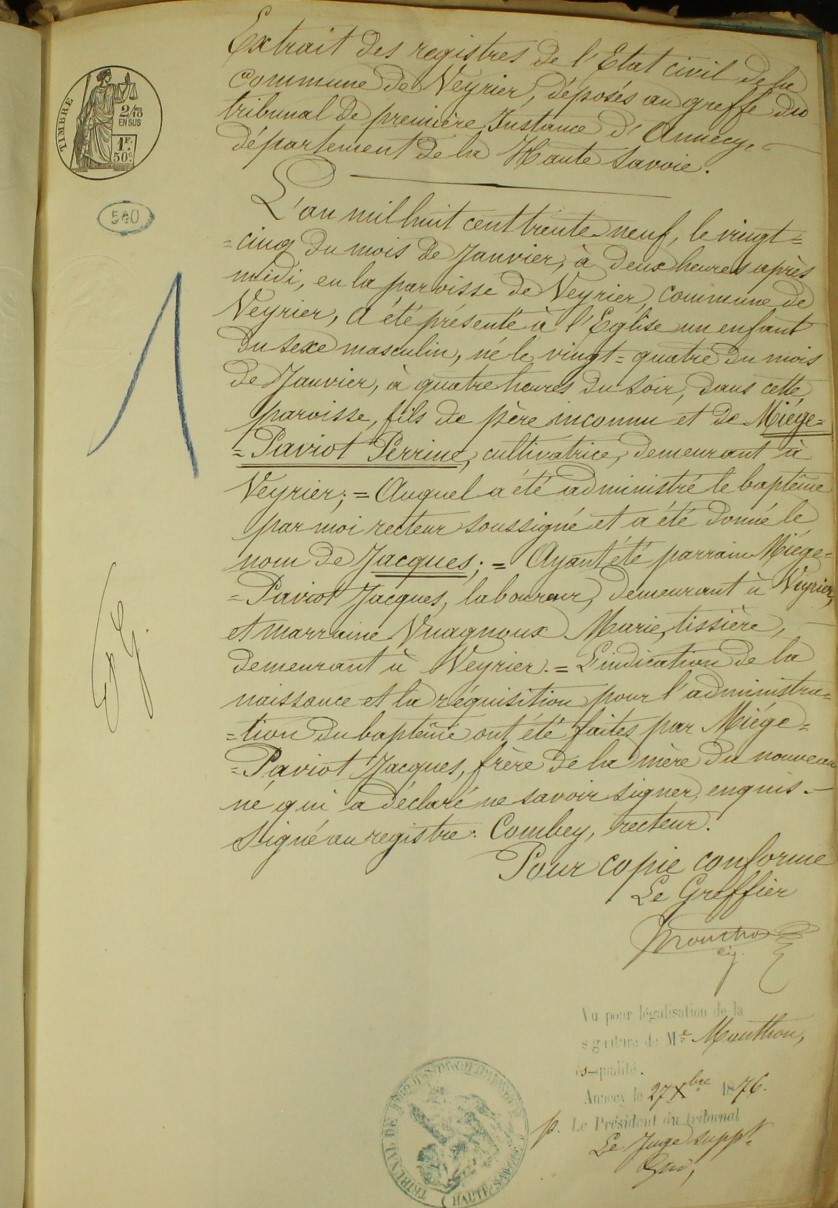 Extrait des registres de l'Etat civil de la
commune de Veyrier, déposés au greffe du
tribunal de première Instance d'Annecy,
département de la Haute Savoie.
TIMBRE
2/10
EN SUS
1F.
50c.
540
L'an mil huit cent trente-neuf, le vingt=
=cinq du mois de Janvier, à deux heures après
midi, en la paroisse de Veyrier, commune de
Veyrier, a été présenté à l'Eglise un enfant
du sexe masculin, né le vingt=quatre du mois
de Janvier, à quatre heures du soir, dans cette
paroisse, fils de père inconnu et de Miége=
=Paviot Perrine, cultivatrice, demeurant à
Veyrier; = Auquel a été administré le baptême
par moi recteur soussigné et a été donné le
nom de Jacques; = Ayant été parrain Miége=
=Paviot Jacques, laboureur, demeurant à Veyrier,
et marraine Vuagnoux Marie, tissière,
demeurant à Veyrier. = L'indication de la
naissance et la réquisition pour l'administra=
=tion du baptême ont été faites par Miége=
=Paviot Jacques, frère de la mère du nouveau
né qui a déclaré ne savoir signer, enquis. —
Signé au registre: Combey, recteur.
Pour copie conforme
Le Greffier
Vu pour légalisation de la
signature de Me Mouthon,
ès-qualité.
Annecy le 27 Xbre 1876.
p. Le Président du tribunal
Le Juge suppt.
TRIBUNAL DE
HAUTE SAVOIE